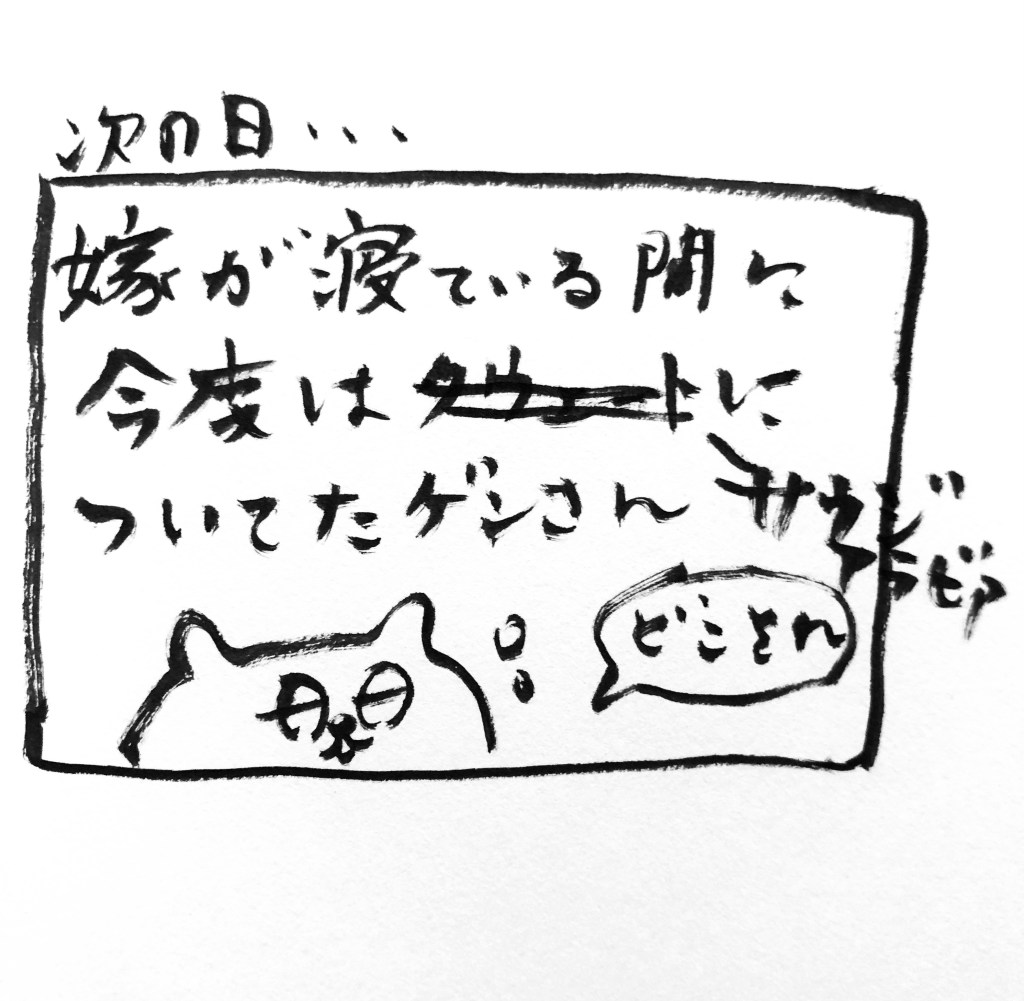 次の日...
嫁が寝ている間に
今度は クウェートに
ついてたゲンさん
サウジ
アラビア
どこどれ